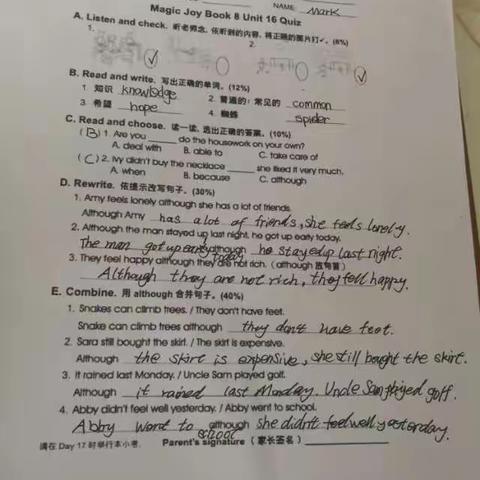 NAME: Mark
Magic Joy Book 8 Unit 16 Quiz
A. Listen and check. 听老师念, 依听到的内容, 将正确的图片打✓。(8%)
1. 2.
B. Read and write. 写出正确的单词。(12%)
1. 知识 knowledge 2. 普通的; 常见的 common
3. 希望 hope 4. 蜘蛛 spider
C. Read and choose. 读一读, 选出正确的答案。(10%)
(B) 1. Are you ______ do the housework on your own?
A. deal with B. able to C. take care of
(C) 2. Ivy didn't buy the necklace ______ she liked it very much.
A. when B. because C. although
D. Rewrite. 依提示改写句子。(30%)
1. Amy feels lonely although she has a lot of friends.
Although Amy has a lot of friends, she feels lonely.
2. Although the man stayed up last night, he got up early today.
The man got up early today although he stayed up last night.
3. They feel happy although they are not rich. (although 放句首)
Although they are not rich, they fell happy.
E. Combine. 用 although 合并句子。(40%)
1. Snakes can climb trees. / They don't have feet.
Snake can climb trees although they don't have feet.
2. Sara still bought the skirt. / The skirt is expensive.
Although the skirt is expensive, she still bought the skirt.
3. It rained last Monday. / Uncle Sam played golf.
Although it rained last Monday. Uncle Sam played golf.
4. Abby didn't feel well yesterday. / Abby went to school.
Abby went to school although she didn't feel well yesterday.
请在 Day 17 时举行本小考. Parent's signature (家长签名)